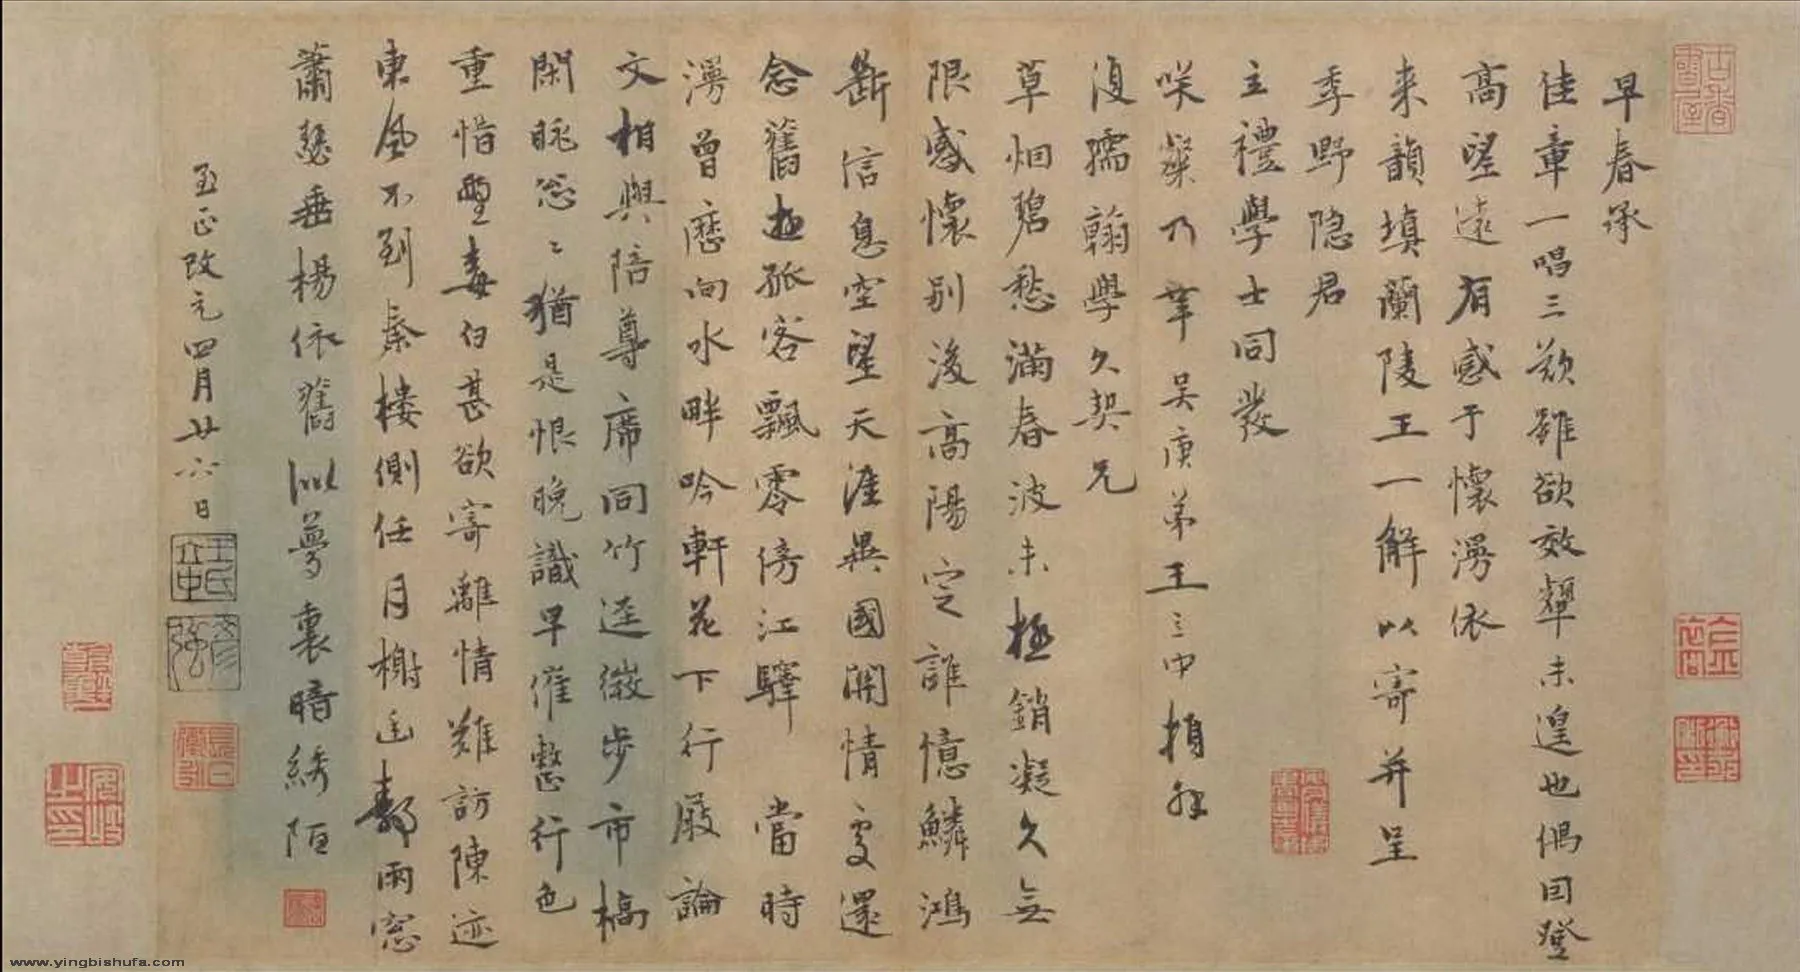 早春承
佳章一唱三歎雖欲效顰未遑也偶因登
高望遠有感于懷漫依
来韻填蘭陵王一解以寄并呈
季野隐君
主禮學士同發
咲粲乃幸吴庚弟王立中頓首
復孺翰學久契兄
草烟碧愁滿春波未極銷凝久無
限感懷别後高陽定誰憶鱗鴻
斷信息空望天涯異國關情處還
念舊遊孤客飄零傍江驛 當時
漫曾歷向水畔吟軒花下行廚論
文相與陪尊席同竹逕微步市橋
閑眺忩〻猶是恨晚識早催整行色
重惜鬢毒白甚欲寄離情難訪陳迹
東風不到秦樓側任月榭雨窓
蕭瑟垂楊依舊似夢裏暗綉陌
至正改元四月廿六日
王氏立中
彦強
www.yingbishufa.com